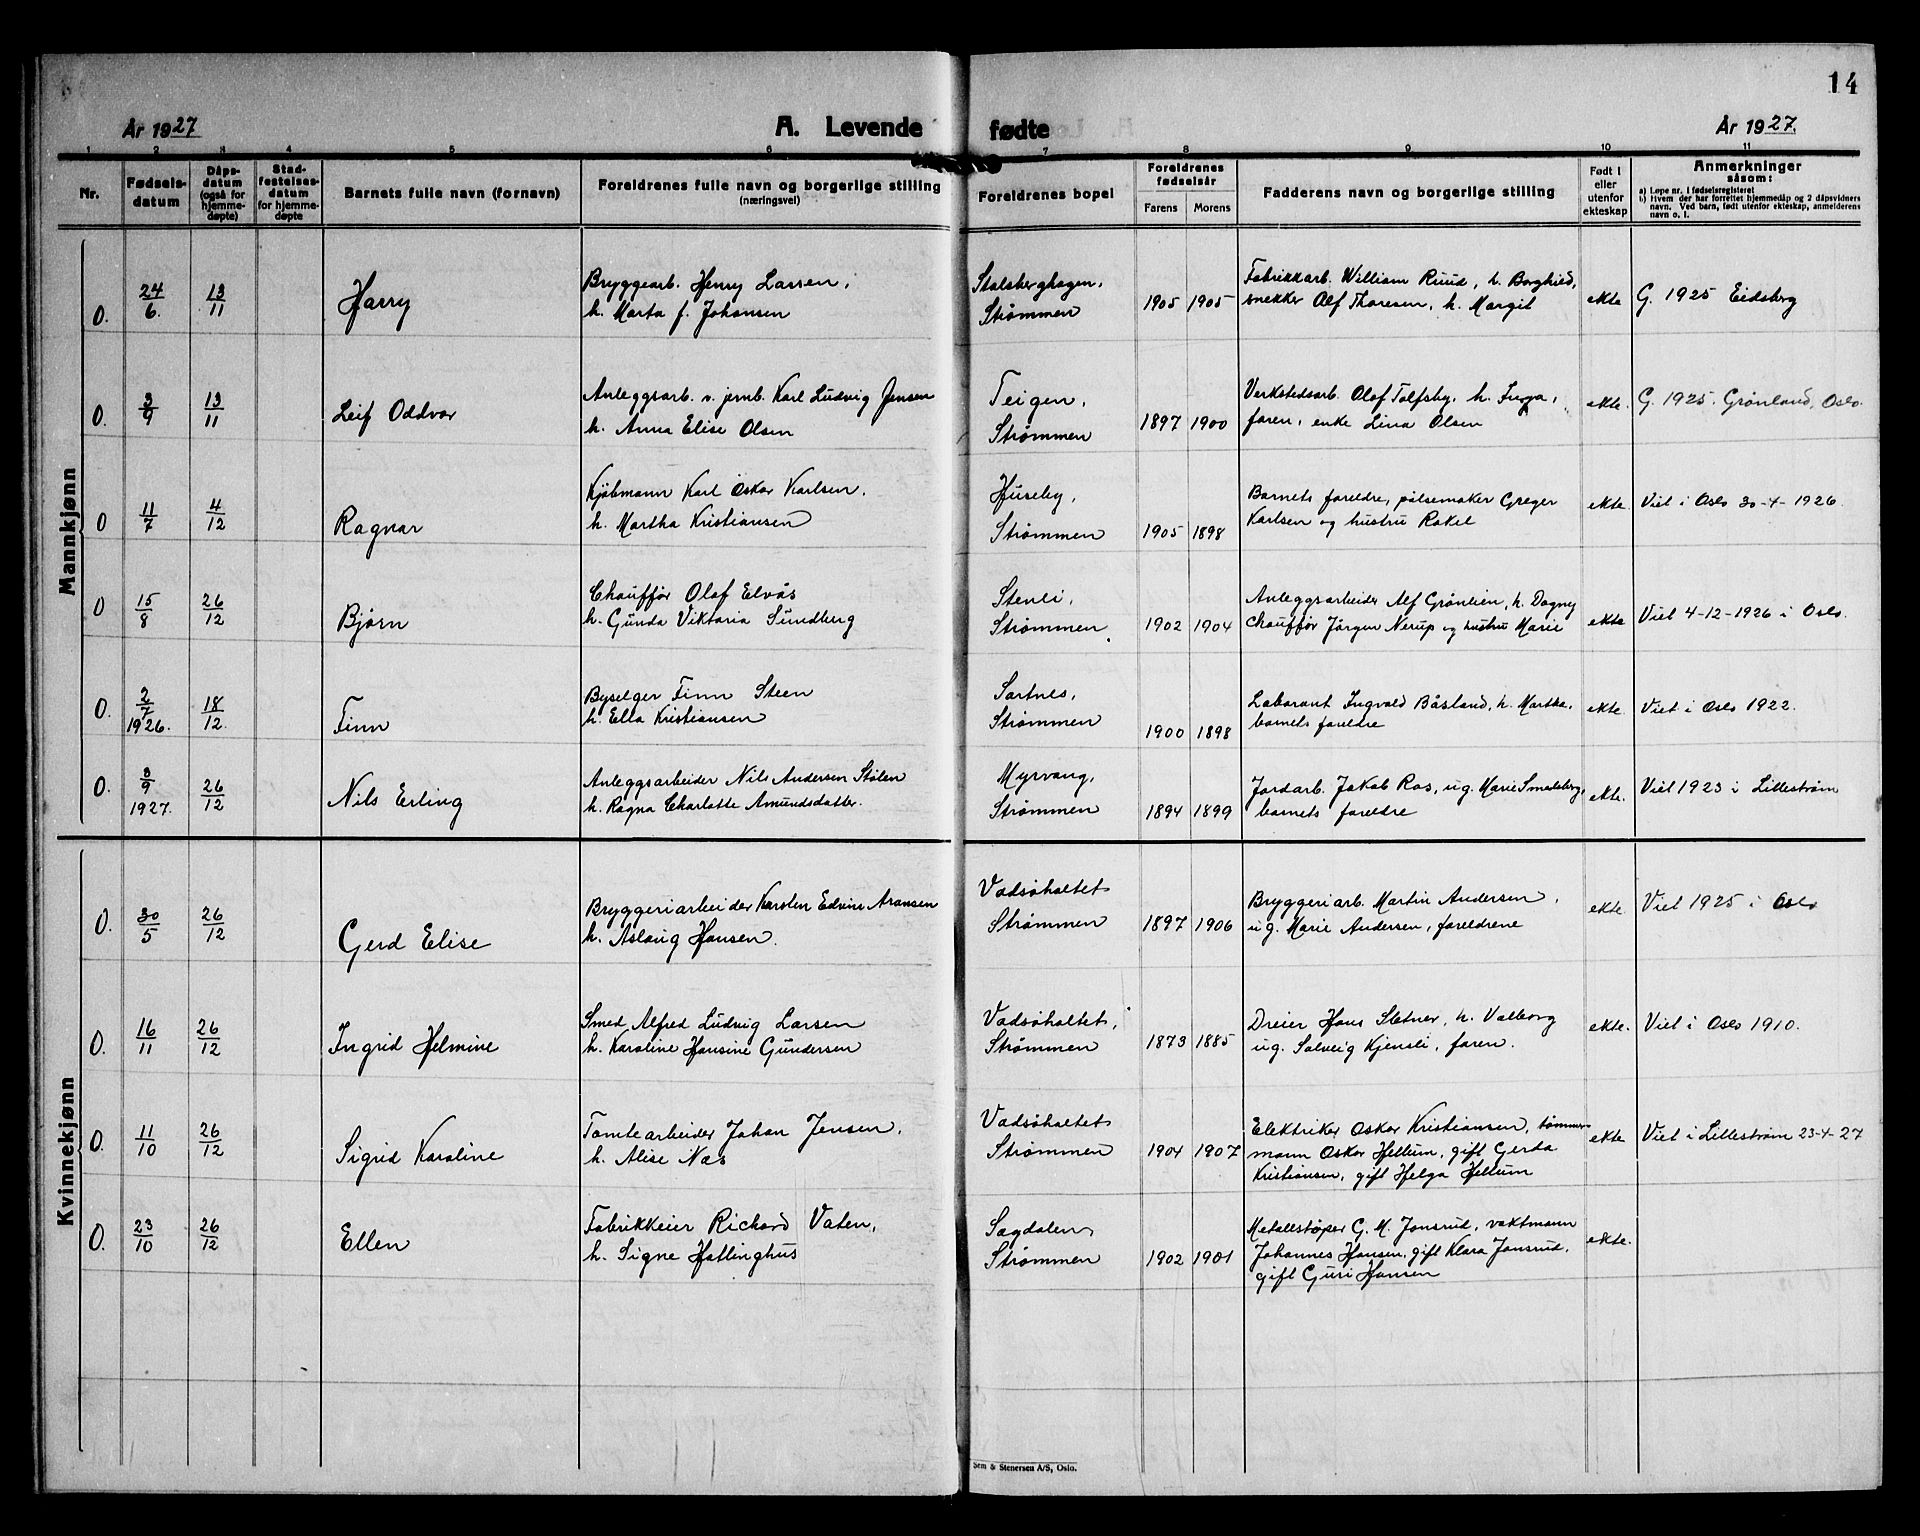 14
År 1927
A. Levende fødte
År 1927.
1 2 3 4 5 6 7 8 9 10 11
Nr.
Fødselsdatum
Dåpsdatum (også for hjemmedøpte)
Stadfestelsesdatum for hjemmedøpte
Barnets fulle navn (fornavn)
Foreldrenes fulle navn og borgerlige stilling
(næringsvei)
Foreldrenes bopel
Foreldrenes fødselsår
Farens Morens
Fadderens navn og borgerlige stilling
Født i eller utenfor ekteskap
Anmerkninger
såsom:
a) Løpe nr. i fødselsregisteret
b) Hvem der har forrettet hjemmedåp og 2 dåpsvidners
navn. Ved barn, født utenfor ekteskap, anmelderens
navn o. l.
Mannkjønn
0. 24/6. 13/11 Harry
Bryggearb. Henry Larsen,
h. Marta f. Johansen
Stalsberghagen,
Strømmen
1905 1905
Fabrikkarb. William Ruud, h. Borghild,
snekker Alf Thoresen, h. Margit
ekte G. 1925 Eidsberg
0. 3/9 13/11 Leif Oddvar
Anleggsarb. v. jernb. Karl Ludvig Jensen
h. Anna Elise Olsen
Teigen,
Strømmen
1897 1900
Verkstedsarb. Olaf Tolfsby, h. Inga,
faren, enke Lina Olsen
ekte. G. 1925. Grønland, Oslo.
0 11/7 4/12 Ragnar
Kjøbmann Karl Oskar Karlsen,
h. Martha Kristiansen
Huseby,
Strømmen
1905 1898
Barnets foreldre, pølsemaker Greger
Karlsen og hustru Rakel
ekte. Viet i Oslo 30-4-1926.
0 15/8 26/12 Bjørn
Chauffør Olaf Elvås
h. Gunda Viktoria Sundberg
Stenli,
Strømmen
1902 1904
Anleggsarbeider Alf Grønlien, h. Dagny
Chauffør Jørgen Nerup og hustru Marie
ekte Viet 4-12-1926 i Oslo.
0. 2/7 1926. 18/12. Finn
Byselger Finn Steen
h. Ella Kristiansen
Sartnes,
Strømmen
1900 1898
Laborant Ingvald Båsland, h. Martha,
barnets foreldre
ekte. Viet i Oslo 1922.
0. 3/9 1927. 26/12 Nils Erling
Anleggsarbeider Nils Andersen Stølen
h. Ragna Charlotte Amundsdatter.
Myrvang,
Strømmen
1894 1899
Jordarb. Jakob Ros, ug. Marie Smedsberg,
barnets foreldre
ekte. Viet 1923 i Lillestrøm
Kvinnekjønn
0. 30/5 26/12 Gerd Elise
Bryggeriarbeider Karsten Edvin Aronsen
h. Aslaug Hansen.
Vadsøhaltet
Strømmen
1897 1906
Bryggeriarb. Martin Andersen,
ug. Marie Andersen, foreldrene
ekte. Viet 1925 i Oslo
0. 16/11 26/12 Ingrid Helmine
Smed Alfred Ludvig Larsen
h. Karoline Hansine Gundersen
Vadsøhaltet,
Strømmen
1873 1885
Dreier Hans Sletner, h. Valborg
ug. Solveig Kjensli, faren.
ekte. Viet i Oslo 1910.
0. 11/10 26/12 Sigrid Karoline
Tomtearbeider Johan Jensen,
h. Alise Næs
Vadsøhaltet
Strømmen
1904 1907
Elektriker Oskar Kristiansen, tømmer-
mann Oskar Hellum, gift Gerda
Kristiansen, gift Helga Hellum
ekte Viet i Lillestrøm 23-4-27
0. 23/10 26/12 Ellen
Fabrikkeier Richard Vaten,
h. Signe Hallinghus
Sagdalen
Strømmen
1902 1901
Metallstøper G. M. Jonsrud, vaktmann
Johannes Hansen, gift Klara Jonsrud,
gift Guri Hansen
ekte.
Sem & Stenersen A/S, Oslo.